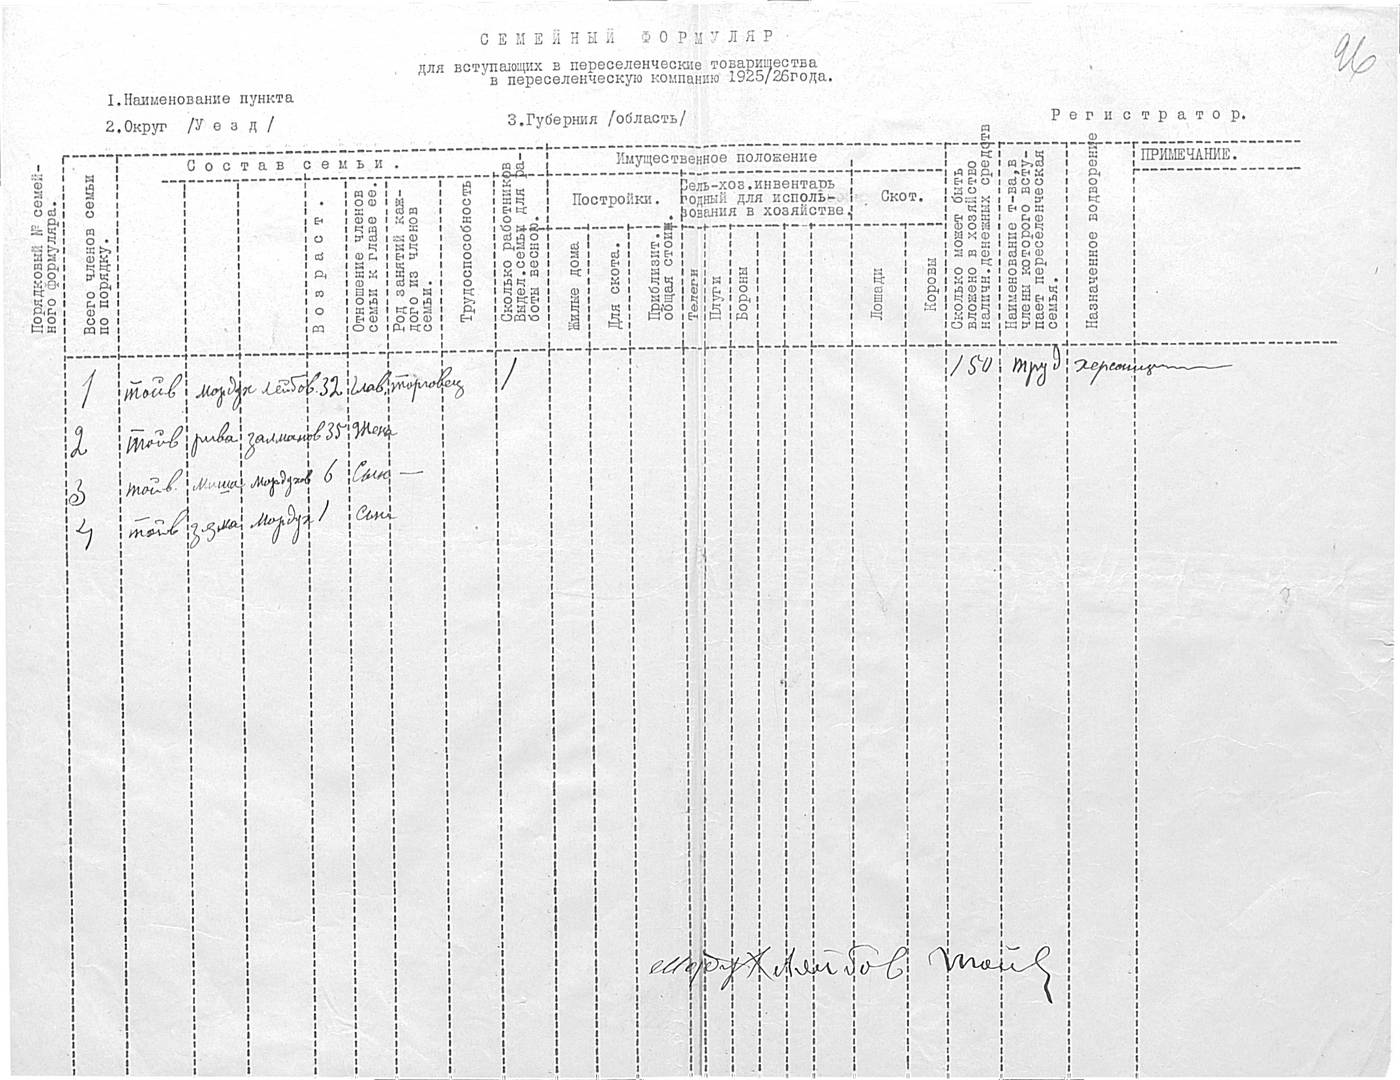 96
СЕМЕЙНЫЙ ФОРМУЛЯР
для вступающих в переселенческие товарищества
в переселенческую компанию 1925/26года.
1.Наименование пункта
2.Округ /Уезд/
3.Губерния /область/
Регистратор.
Порядковый № семей-
ного формуляра.
Всего членов семьи
по порядку.
Состав семьи.
Возраст.
Отношение членов
семьи к главе ее.
Род занятий каж-
дого из членов
семьи.
Трудоспособность
Сколько работников
выдел.семья для ра-
боты весною.
Имущественное положение
Постройки.
Жилые дома
Для скота.
Приблизит.
общая стоим.
Сель-хоз.инвентарь
годный для исполь-
зования в хозяйстве.
Телеги
Плуги
Бороны
Скот.
Лошади
Коровы
Сколько может быть
вложено в хозяйство
наличн.денежных средств
Наименование т-ва,в
члены которого всту-
пает переселенческая
семья.
Назначенное водворение
ПРИМЕЧАНИЕ.
1 тайв мордух лейбов. 32 глав. торговец 1 150 труд
2 тайв рива залманов 35 жена
3 тайв. миша мордухов 6 Сын —
4 тайв зяма мордух 1 сын
мордух Ляйбов тайв